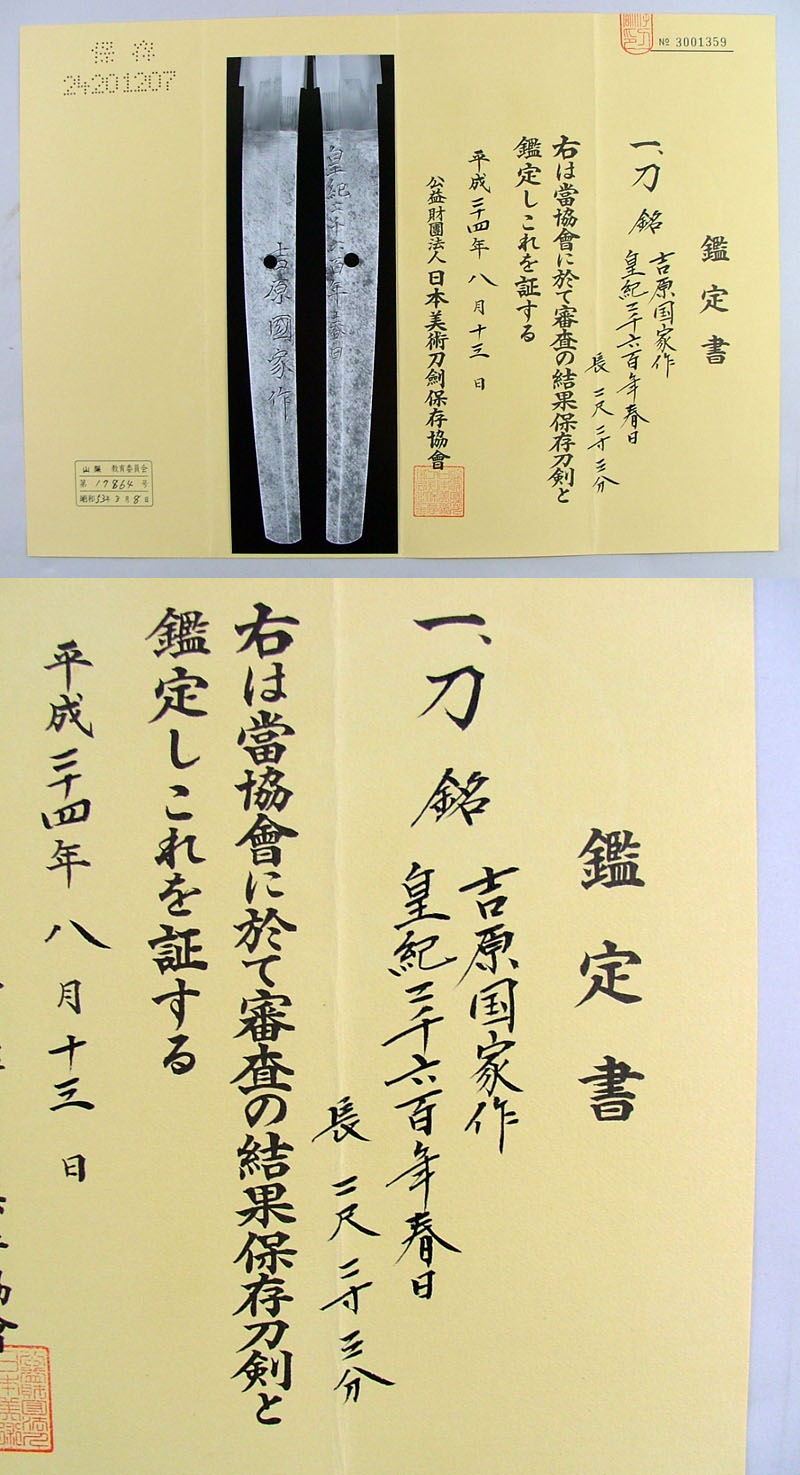 保存
24201207
№ 3001359
鑑定書
一、刀 銘 吉原国家作
皇紀二千六百年春日
長 二尺二寸三分
右は當協會に於て審査の結果保存刀剣と
鑑定しこれを証する
平成二十四年八月十三日
公益財團法人日本美術刀劍保存協會
皇紀二千六百年春日
吉原國家作
教育委員会
第17864号
昭和53年3月8日
鑑定書
一、刀 銘 吉原国家作
皇紀二千六百年春日
長 二尺二寸三分
右は當協會に於て審査の結果保存刀剣と
鑑定しこれを証する
平成二十四年八月十三日